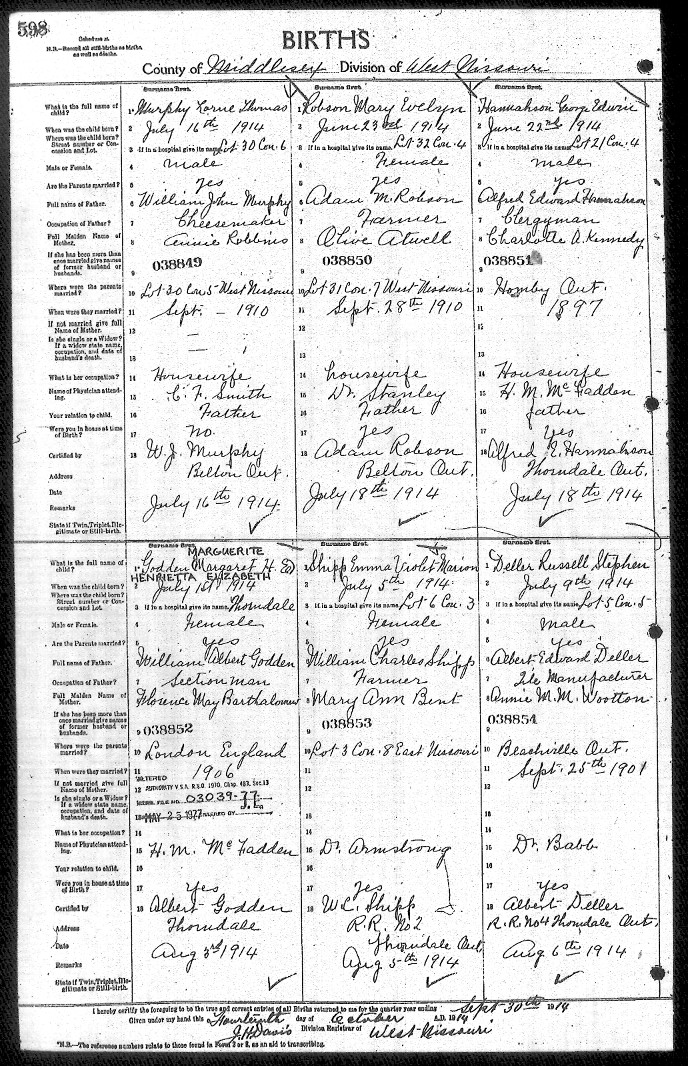 598
Schedule A.
N.B.—Record all still-births as births, as well as deaths.
BIRTHS
County of Middlesex Division of West Nissouri
Surname first. Surname first. Surname first.
What is the full name of child? 1 Murphy Lorne Thomas 1 Robson Mary Evelyn 1 Hannahson George Edwin
When was the child born? 2 July 16th 1914 2 June 23rd 1914 2 June 22nd 1914
Where was the child born? Street number or Concession and Lot. 3 If in a hospital give its name Lot 30 Con. 6 3 If in a hospital give its name Lot 32 Con. 4 3 If in a hospital give its name Lot 21 Con. 4
Male or Female. 4 male 4 Female 4 male
Are the Parents married? 5 yes 5 yes 5 yes
Full name of Father. 6 William John Murphy 6 Adam M. Robson 6 Alfred Edward Hannahson
Occupation of Father? 7 Cheesemaker 7 Farmer 7 Clergyman
Full Maiden Name of Mother. 8 Annie Robbins 8 Olive Atwell 8 Charlotte A. Kennedy
If she has been more than once married give names of former husband or husbands. 9 038849 9 038850 9 038851
Where were the parents married? 10 Lot 30 Con 5 West Nissouri 10 Lot 31 Con. 7 West Nissouri 10 Hornby Ont.
When were they married? 11 Sept. – 1910 11 Sept. 28th 1910 11 1897
If not married give full Name of Mother. 12 — 12 12
Is she single or a Widow? If a widow state name, occupation, and date of husband's death. 13 — 13 13
What is her occupation? 14 Housewife 14 housewife 14 Housewife
Name of Physician attending. 15 C. F. Smith 15 Dr. Stanley 15 H. M. McFadden
Your relation to child. 16 Father 16 Father 16 father
Were you in house at time of Birth? 17 No. 17 yes 17 yes
Certified by 18 W. J. Murphy 18 Adam Robson 18 Alfred E. Hannahson
Address Belton Ont. Belton Ont. Thorndale Ont.
Date July 16th 1914 July 18th 1914 July 18th 1914
Remarks
State if Twin, Triplet, Illegitimate or Still-birth.
Surname first. Surname first. Surname first.
MARGUERITE
What is the full name of child? 1 Godden Margaret H. E. 1 Shipp Emma Violet Marion 1 Deller Russell Stephen
HENRIETTA ELIZABETH
When was the child born? 2 July 1914 2 July 5th 1914 2 July 9th 1914
Where was the child born? Street number or Concession and Lot. 3 If in a hospital give its name Thorndale 3 If in a hospital give its name Lot 6 Con. 3 3 If in a hospital give its name Lot 5 Con. 5
Male or Female. 4 Female 4 Female 4 male
Are the Parents married? 5 yes 5 yes 5 yes
Full name of Father. 6 William Albert Godden 6 William Charles Shipp 6 Albert Edward Deller
Occupation of Father? 7 Section man 7 Farmer 7 Tile Manufacturer
Full Maiden Name of Mother. 8 Florence May Barthalomew 8 Mary Ann Bent 8 Annie M. M. Wootton
If she has been more than once married give names of former husband or husbands. 9 038852 9 038853 9 038854
Where were the parents married? 10 London England 10 Lot 3 Con. 8 East Nissouri 10 Beachville Ont.
When were they married? 11 1906 11 11 Sept. 25th 1901
ALTERED
If not married give full Name of Mother. 12 AUTHORITY V.S.A. R.S.O. 1970, Chap. 483, Sec. 13 12 12
Is she single or a Widow? If a widow state name, occupation, and date of husband's death. FILE NO. 03039-77
13 MAY 25 1977 13 13
What is her occupation? 14 14 14
Name of Physician attending. 15 H. M. McFadden 15 Dr. Armstrong 15 Dr. Babb
Your relation to child. 16 16 16
Were you in house at time of Birth? 17 Yes 17 yes 17 yes
Certified by 18 Albert Godden 18 W. C. Shipp 18 Albert Deller
Address Thorndale R.R. No 2 Thorndale Ont. R. R. No 4 Thorndale Ont.
Date Aug 3rd 1914 Aug 5th 1914 Aug 6th 1914
Remarks
State if Twin, Triplet, Illegitimate or Still-birth.
I hereby certify the foregoing to be the true and correct entries of all Births returned to me for the quarter year ending Sept 30th 1914
Given under my hand this Fourteenth day of October A.D. 1914
J. H. Davis Division Registrar of West Nissouri
*N.B.—The reference numbers relate to those found in Form 2 or 3, as an aid to transcribing.